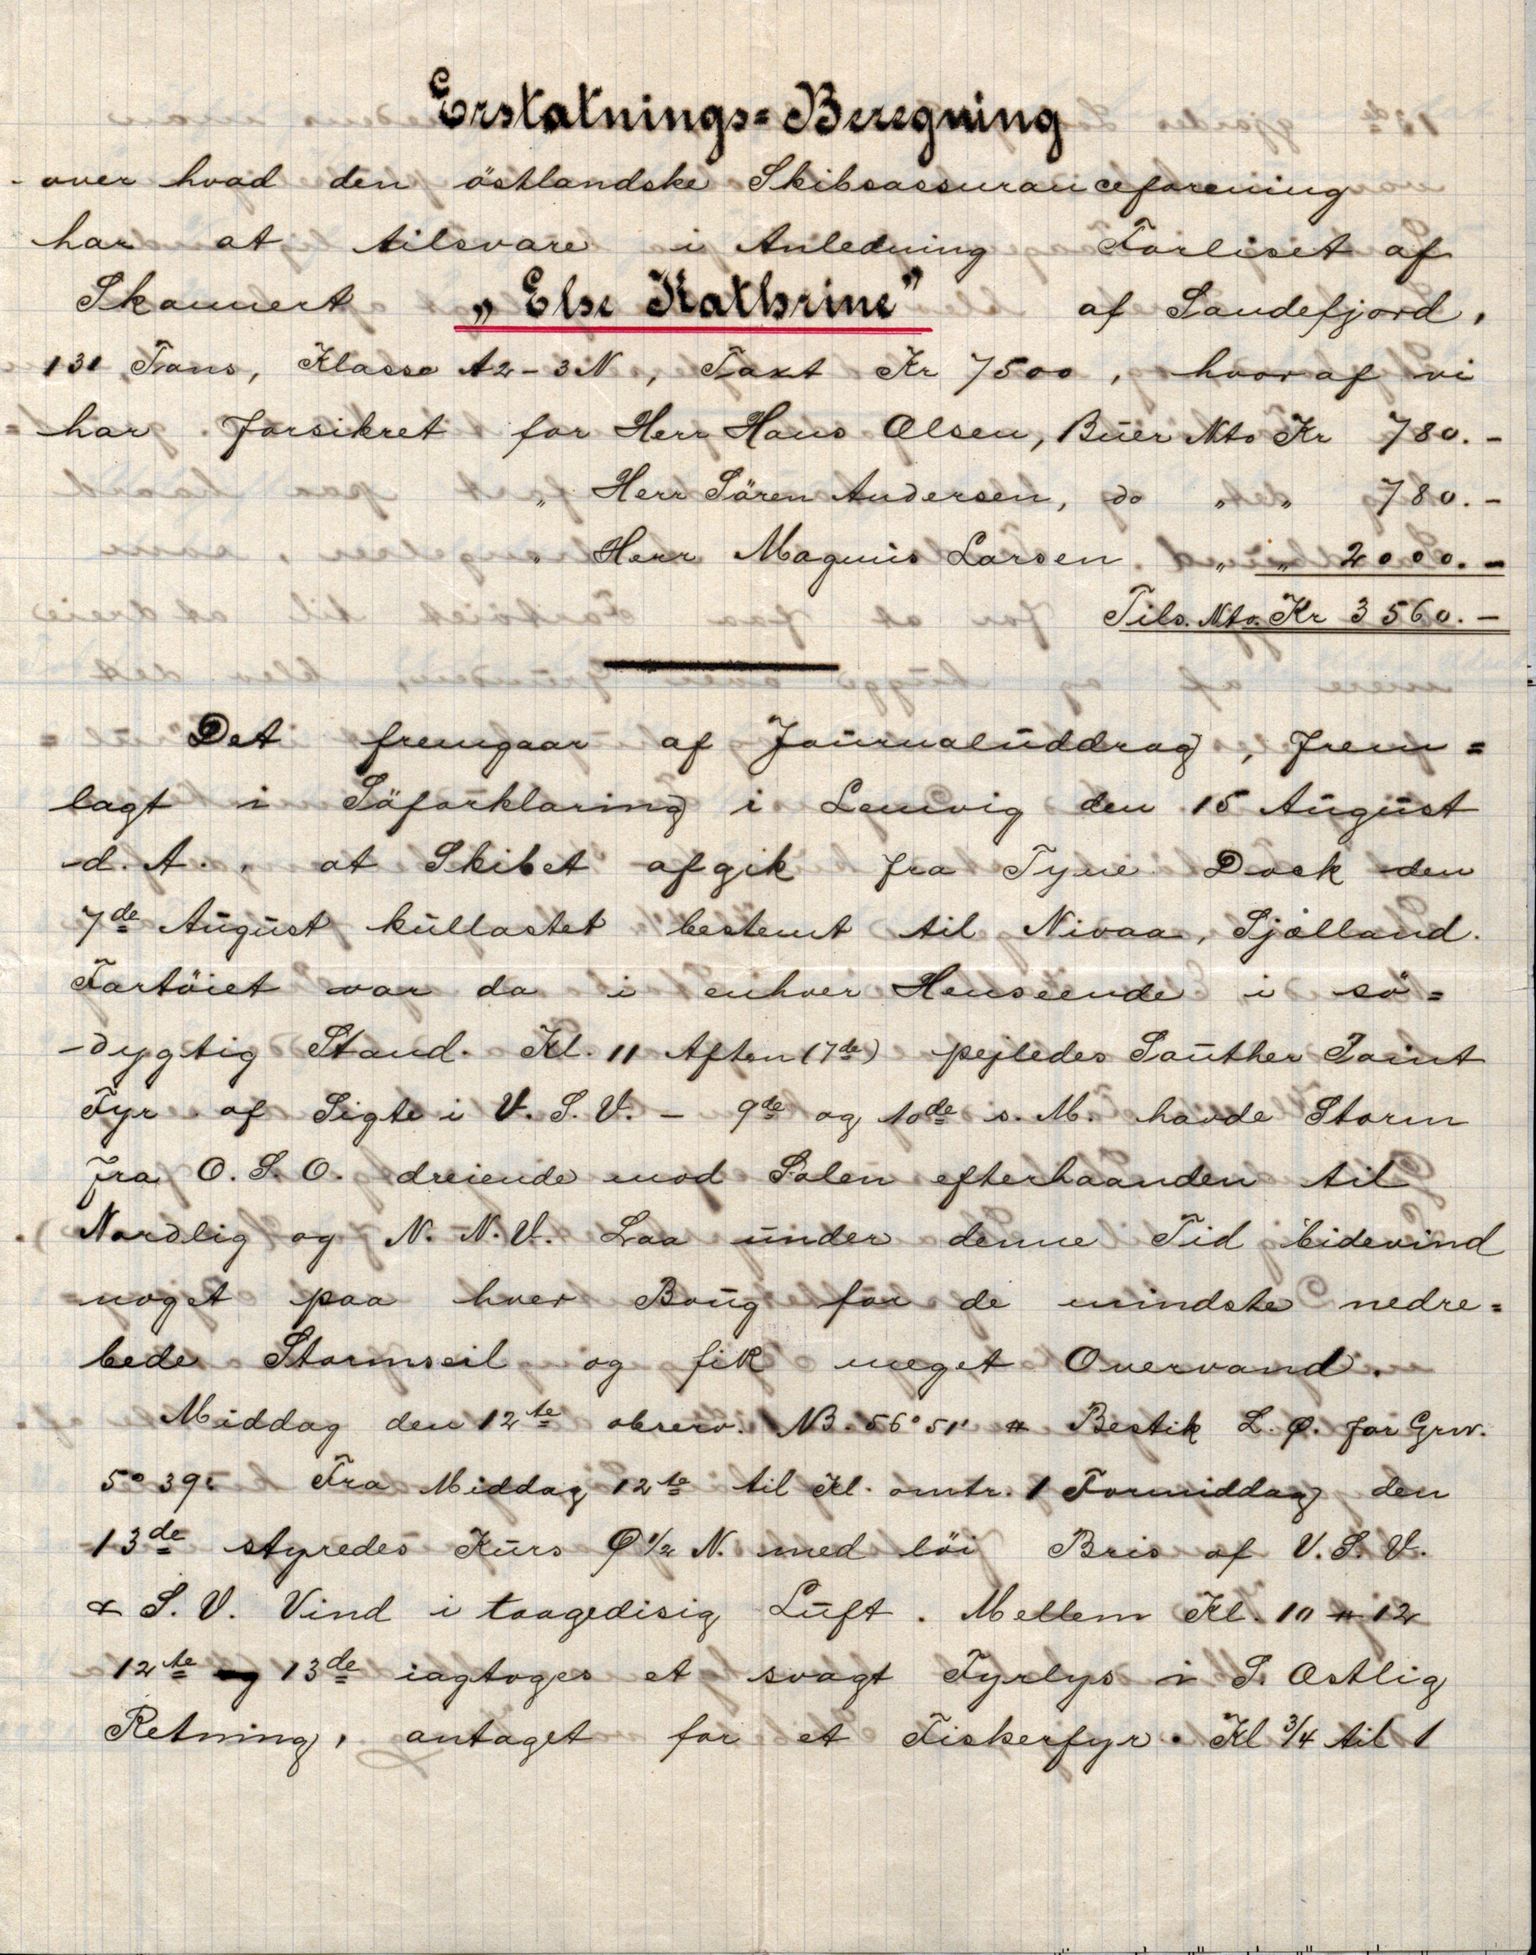 Erstatnings=Beregning
over hvad den östlandske Skibsassuranceforening
har at tilsvare i Anledning Forliset af
Skonnert „Else Kathrine” af Sandefjord,
131 Tons, Klasse A2-3N, Taxt Kr 7500, hvoraf vi
har forsikret for Herr Hans Olsen, Buer Nto Kr 780.-
„ Herr Sören Andersen, do „ „ 780.-
„ Herr Magnus Larsen. „ „ 2000.-
Tils. Nto. Kr 3560.-
Det fremgaar af Journaluddrag, frem=
lagt i Söforklaring i Lemvig den 15 August
d. A., at Skibet afgik fra Tyne Dock den
7de August kullastet bestemt til Nivaa, Sjælland.
Fartöiet var da i enhver Henseende i sö=
dygtig Stand. Kl. 11 Aften (7de) pejledes Souther Point
Fyr af Sigte i V.S.V. - 9de og 10de s. M. havde Storm
fra O.S.O. dreiende mod Solen efterhaanden til
Nordlig og N.N.V. Laa under denne Tid bidevind
noget paa hver Boug for de mindste nedre=
bede Stormseil og fik meget Overvand.
Middag den 12te observ. NB. 56° 51' & Bestik L. Ø. for Grw.
5° 39' Fra Middag 12te til Kl. omtr. 1 Formiddag den
13de styredes Kurs Ø 1/2 N. med löi Bris af V.S.V.
& S.V. Vind i taagedisig Luft. Mellem Kl. 10 & 12
12te og 13de iagtoges et svagt Fyrlys i S. Ostlig
Retning, antaget for et Fiskerfyr. Kl 3/4 til 1